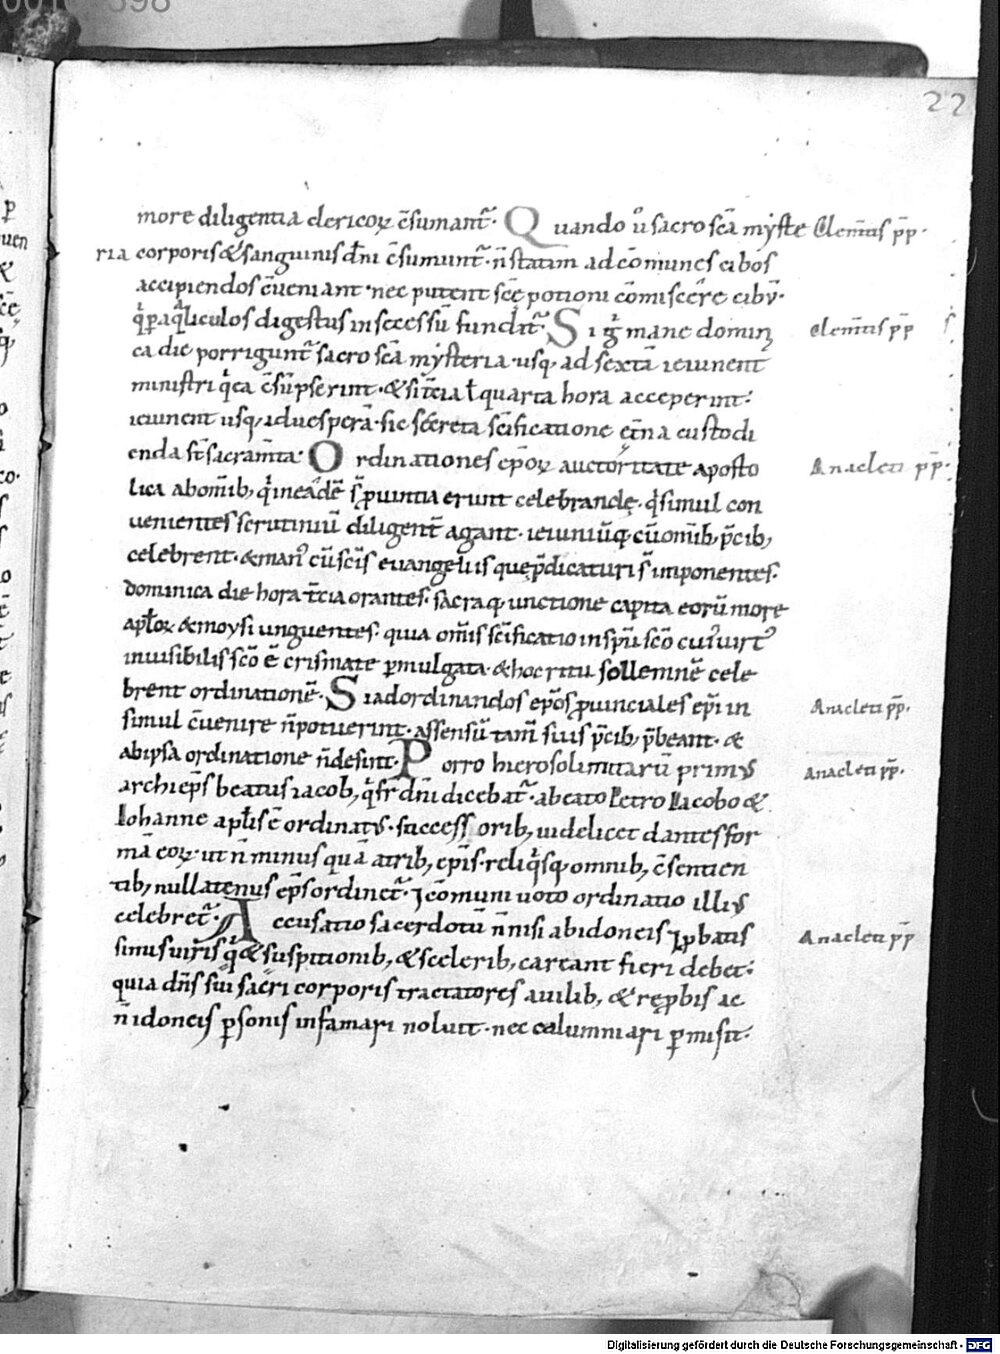 22
more diligentia clericoꝝ c̄sumant᷑· Quando ů sacro sc̄a myste Clem̄tis pp̄·
ria corporis &sanguinis dn̄i c̄sumunt᷑· n̄statim ad cōmunes cibos
accipiendos c̄ueniant· nec putent sc̄ę potioni cōmiscere cibū·
q̇ p aq̇liculos digestus in secessū fundit᷑· Si g̊ mane domini Clem̄tis pp̄
ca die porrigunt᷑ sacro sc̄a mysteria· usq; ad sextā ieiunent
ministri q̇ ea c̄sūpserint· & si t̄cia ł quarta hora acceperint·
ieiunent usq; ad uesperā· sic secreta sc̄ificatione et̄na custodi
enda st̄ sacram̄ta· Ordinationes ep̄oꝝ auctoritate aposto Anacleti pp̄·
lica ab om̄ib; q̇ in eadē s̄ ꝓuintia erunt celebrandę· q̇ simul con
uenientes scrutiniū diligent̄ agant· ieiuniūq; cū om̄ib; p̄cib;
celebrent· & man᷒ cū sc̄is euangeliis que p̄dicaturi s̄ imponentes·
dominica die hora t̄cia orantes· sacraq; unctione capita eorū more
apłoꝝ & moysi unguentes· quia om̄is sc̄ificatio in spū sc̄o cui᷒ uirt᷒
inuisibilis sc̄o ē crismate ꝑmulgata· & hoc ritu sollemnē cele
brent ordinationē· Si ad ordinandos ep̄os ꝓuinciales ep̄i in Anacleti pp̄·
simul c̄uenire n̄ potuerint· assensū tam̄ suis p̄cib; p̄beant· &
ab ipsa ordinatione n̄ desint· Porro hierosolimitarū primus Anacleti pp̄·
archiep̄s beatus iacob; q̇ fr̄ dn̄i dicebat᷑· a beato Petro Iacobo &
Iohanne apłis ē ordinatus· successorib; uidelicet dantes for
mā eoꝝ· ut n̄ minus quā a trib; ep̄is· reliq̇sq; omnib; c̄sentien
tib; nullatenus ep̄s ordinet᷑· & cōmuni uoto ordinatio illius
celebret᷑· Accusatio sacerdotū n̄ nisi ab idoneis & ꝓbatis Anacleti pp̄
simus uiris q̇ & suspitionib; & scelerib; careant fieri debet·
quia dn̄s sui sacri corporis tractatores a uilib; & reꝓbis ac
n̄ idoneis ꝑsonis infamari noluit· nec calumniari ꝑmisit·
Digitalisierung gefördert durch die Deutsche Forschungsgemeinschaft - DFG